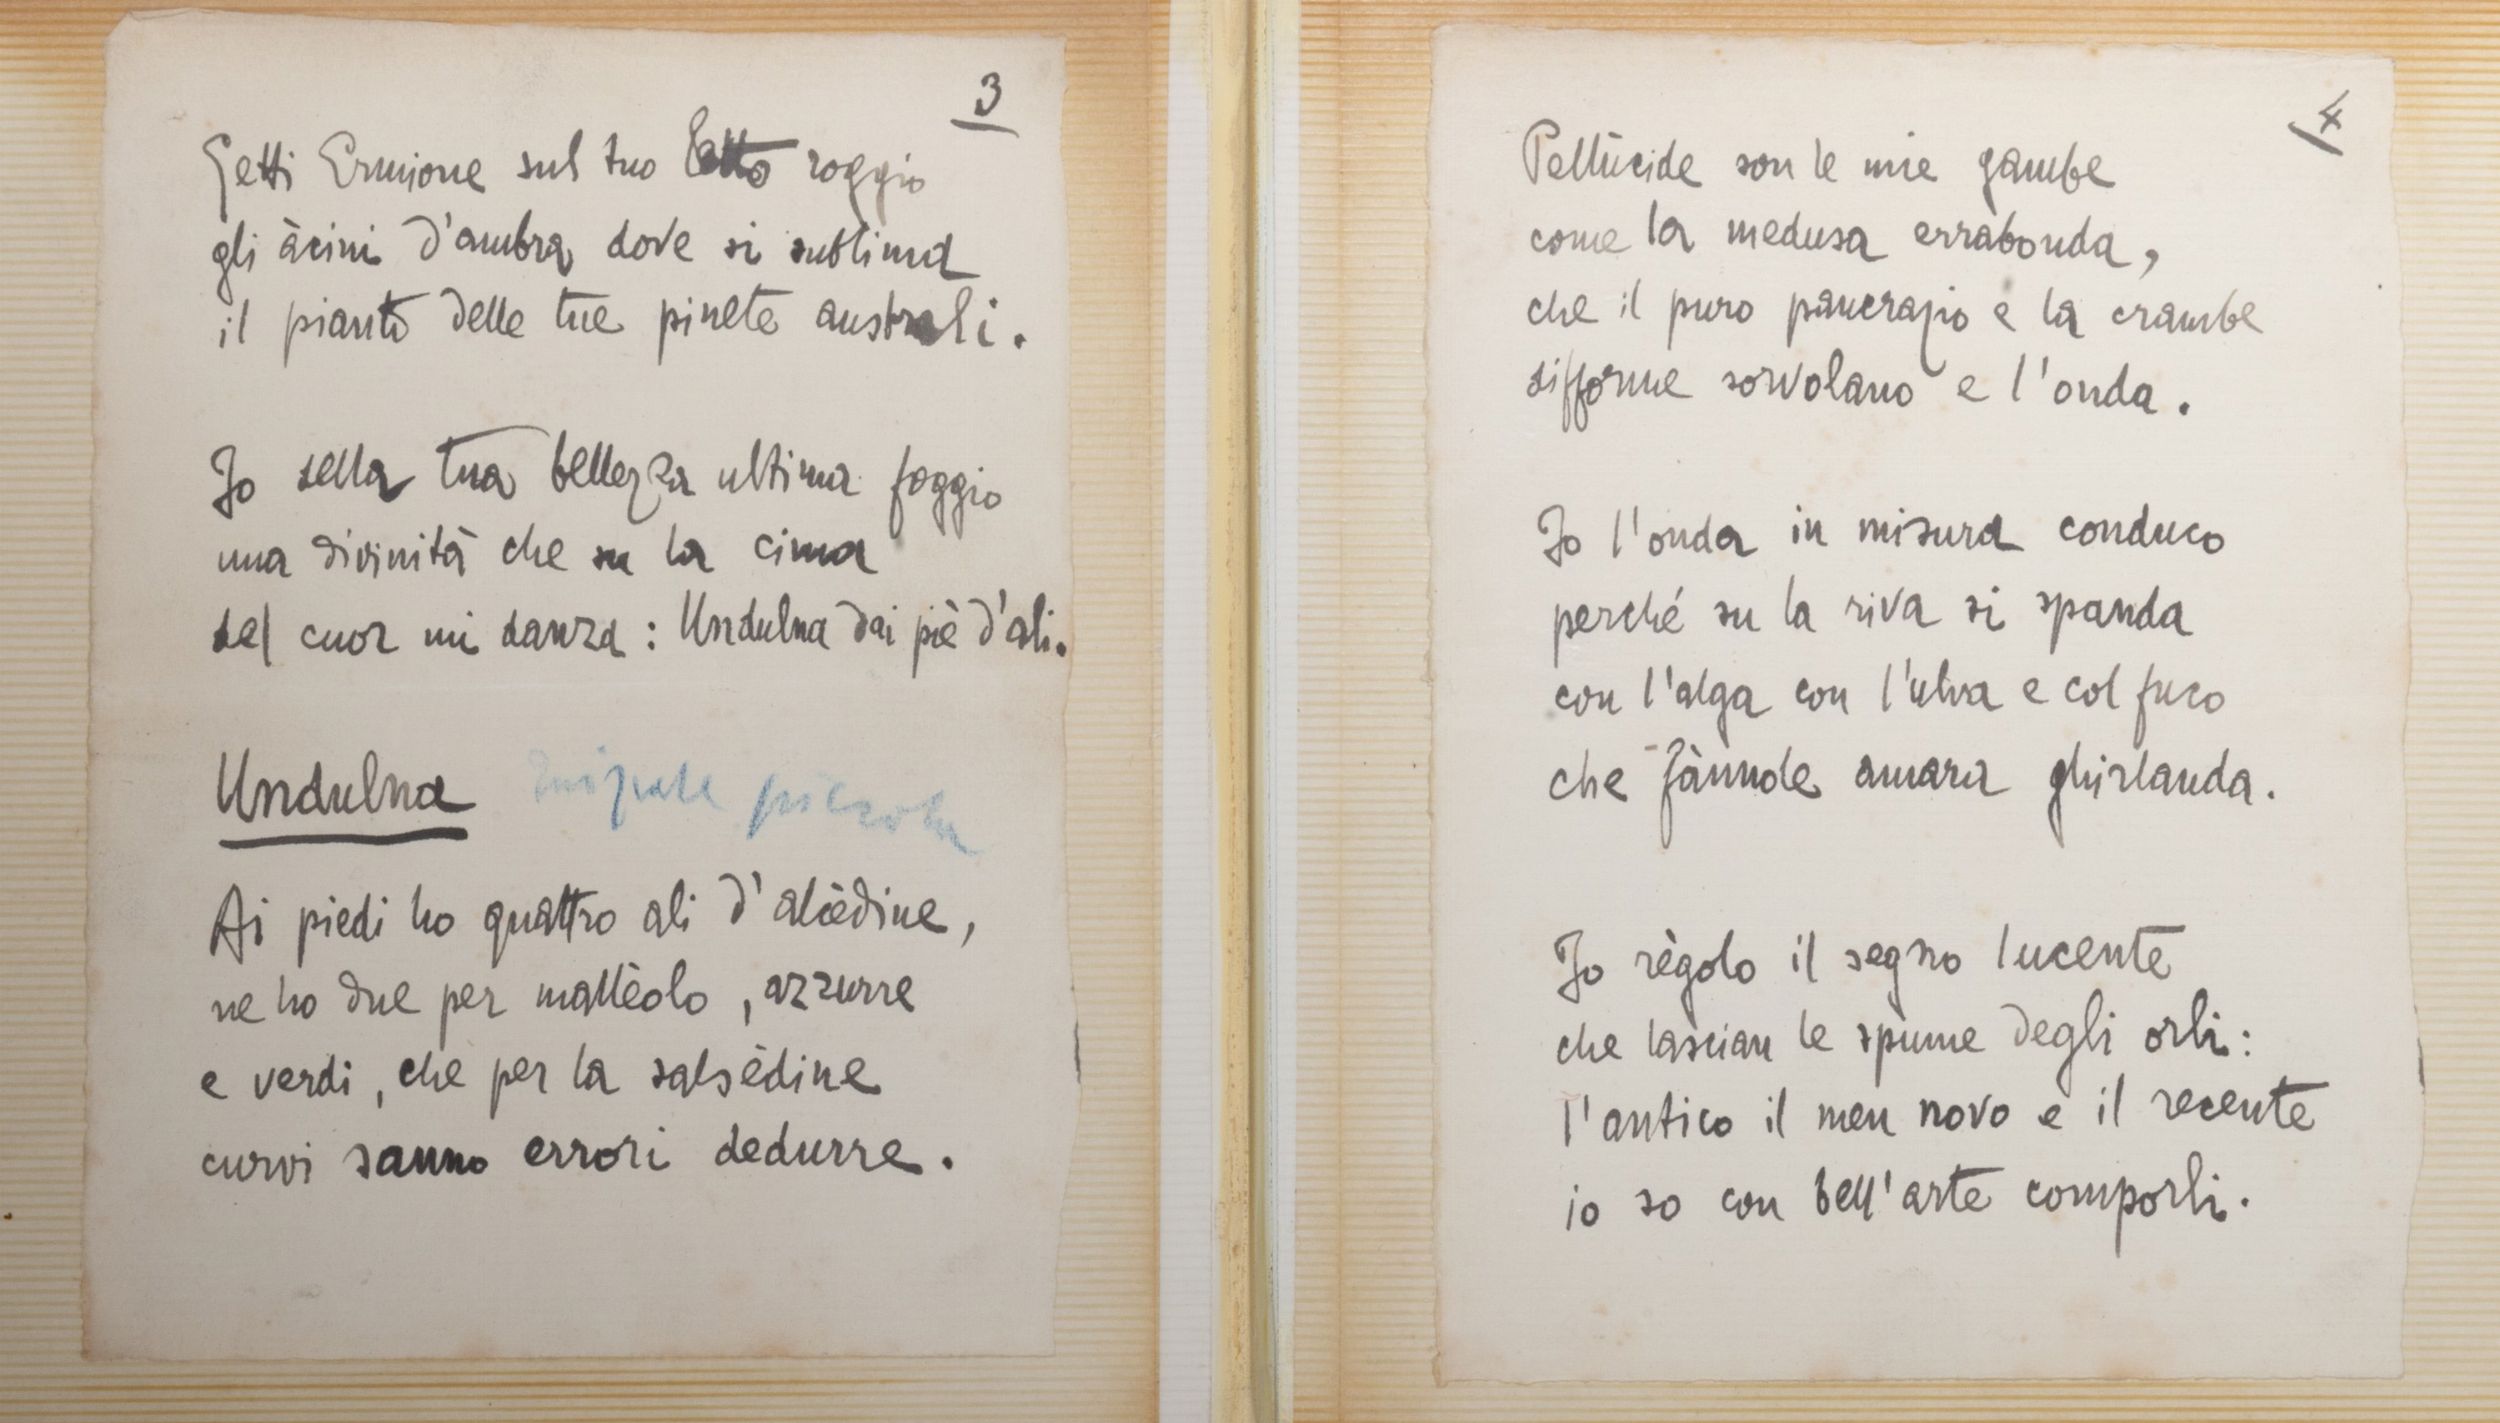 3
Getti Ermione sul tuo letto roggio
gli àcini d'ambra dove si sublima
il pianto delle tue pinete australi.
Io della tua bellezza ultima foggio
una divinità che su la cima
del cuor mi danza: Undulna dai piè d'ali.
Undulna
Iniziale piccola
Ai piedi ho quattro ali d'alcèdine,
ne ho due per mallèolo, azzurre
e verdi, che per la salsèdine
curvi sanno errori dedurre.
4
Pellùcide son le mie gambe
come la medusa errabonda,
che il puro pancrazio e la crambe
difforme sorvolano e l'onda.
Io l'onda in misura conduco
perché su la riva si spanda
con l'alga con l'ulva e col fuco
che fànnole amara ghirlanda.
Io règolo il segno lucente
che lascian le spume degli orli:
l'antico il men novo e il recente
io so con bell'arte comporli.